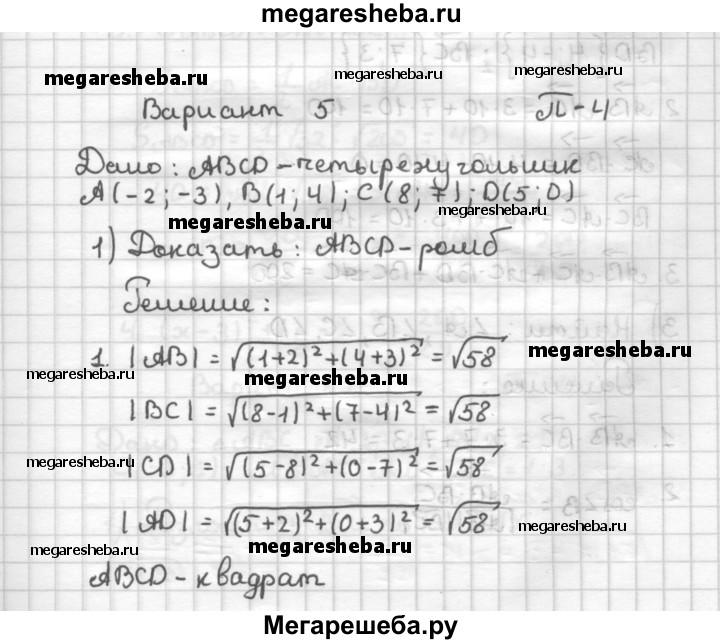 megaresheba.ru
megaresheba.ru megaresheba.ru megaresheba.ru
Вариант 5 П-4
Дано: ABCD-четырехугольник
A(-2;-3), B(1;4); C(8;7); D(5;0)
megaresheba.ru megaresheba.ru
1) Доказать: ABCD-ромб
Решение:
1. |AB| = √((1+2)²+(4+3)²) = √58 megaresheba.ru
megaresheba.ru megaresheba.ru
|BC| = √((8-1)²+(7-4)²) = √58
|CD| = √((5-8)²+(0-7)²) = √58
megaresheba.ru megaresheba.ru
|AD| = √((5+2)²+(0+3)²) = √58 megaresheba.ru
megaresheba.ru megaresheba.ru
ABCD-квадрат
Мегарешеба.ру